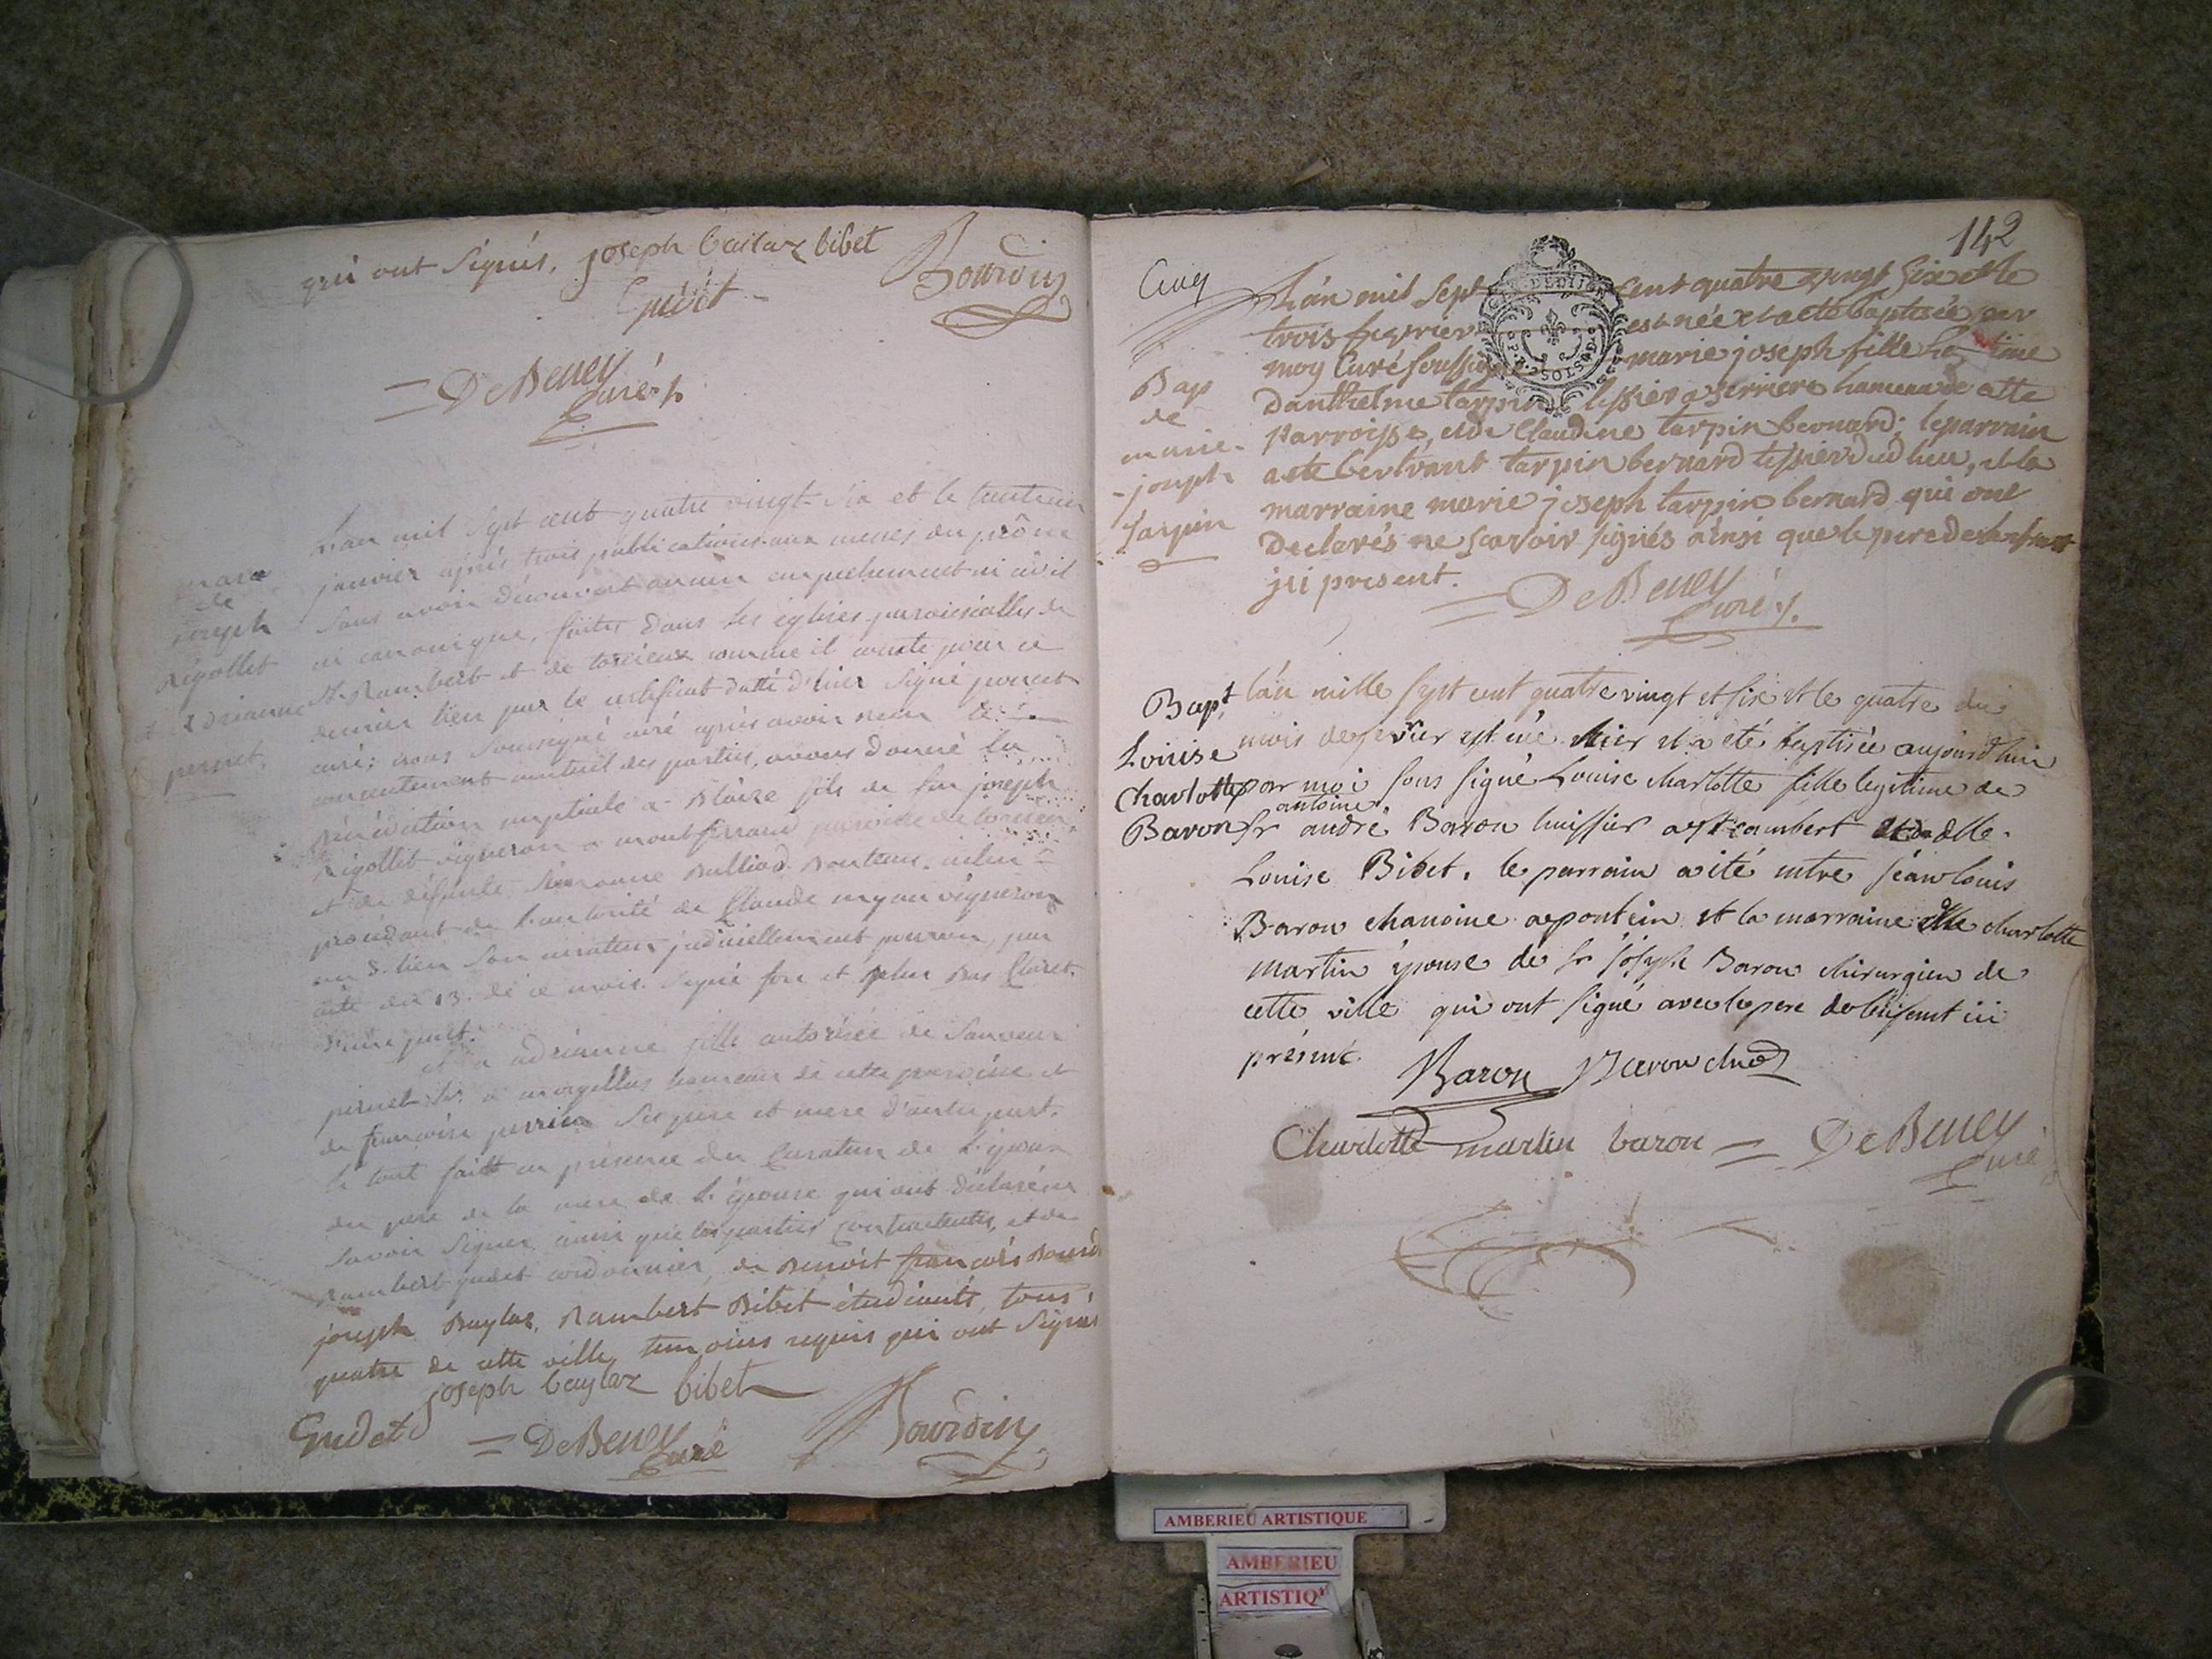 qui ont signés. joseph bailaz bibet
Gudet Bourdin
= DeBeney
Curé
mara
de
joseph
Rigollet
et adrianne
pernet.
L'an mil sept cent quatre vingt-six et le trentieme
janvier après trois publications aux messes du prône
sans avoir découvert aucun empechement ni civil
ni canonique, faites dans les églises paroissialles de
St. Rambert et de torcieux comme il conste pour ce
dernier lieu par le certificat datté d'hier signé
curé; nous soussigné curé après avoir reçu le
consentement mutuel des parties, avons donné la
bénédiction nuptiale a Blaize fils de feu joseph
Rigollet vigneron a montferrand paroisse de torcieu
et de défunte
procédant de l'autorité de Claude vigneron
au d. lieu son curateur judiciellement pourvu, par
acte du 13. de ce mois. signé et plus bas
d'une part.
et a adrianne fille autorisée de
pernet hameau de cette paroisse et
de françoise perrin ses pere et mere d'autre part.
le tout fait en présence du Curateur de l'epoux
du pere de la mere de l'épouse qui ont déclaré ne
savoir signer ainsi que les parties contractantes, et de
Rambert gudet cordonnier, de Benoit françois Bourdin
joseph Baylaz, Rambert Bibet étudiants, tous
quatre de cette ville, temoins requis qui ont signés
joseph baylaz bibet
Gudet = DeBeney Bourdin
Curé
142
Cinq
Bap
de
marie-
-joseph
tarpin
L'an mil sept cent quatre vingt six et le
trois fevrier est née et a eté baptisée par
moy Curé soussigné marie joseph fille légitime
d'anthelme tarpin tissier a serriere hameau de cette
Parroisse, et de Claudine tarpin bernard; le parrain
a eté bertrant tarpin bernard tissier dud lieu, et la
marraine marie joseph tarpin bernard qui ont
declarés ne scavoir signés ainsi que le pere de l'enfant
ici present.
= DeBeney
Curé
Bapt
Louise
Charlotte
Baron
l'an mille sept cent quatre vingt et six et le quatre du
mois de fevrier est née hier et a eté baptisée aujourd'hui
par moi sous signé Louise charlotte fille legitime de
antoine
sr andré Baron huissier a st rambert et de dlle.
Louise Bibet. le parrain a été mtre jean louis
Baron chanoine a pontcin et la marraine dlle charlotte
martin épouse de sr joseph Baron chirurgien de
cette ville qui ont signé avec le pere de l'enfant ici
présent.
Baron Baron chne
Charlotte martin baron = DeBeney
Curé
AMBERIEU ARTISTIQUE
AMBERIEU
ARTISTIQ